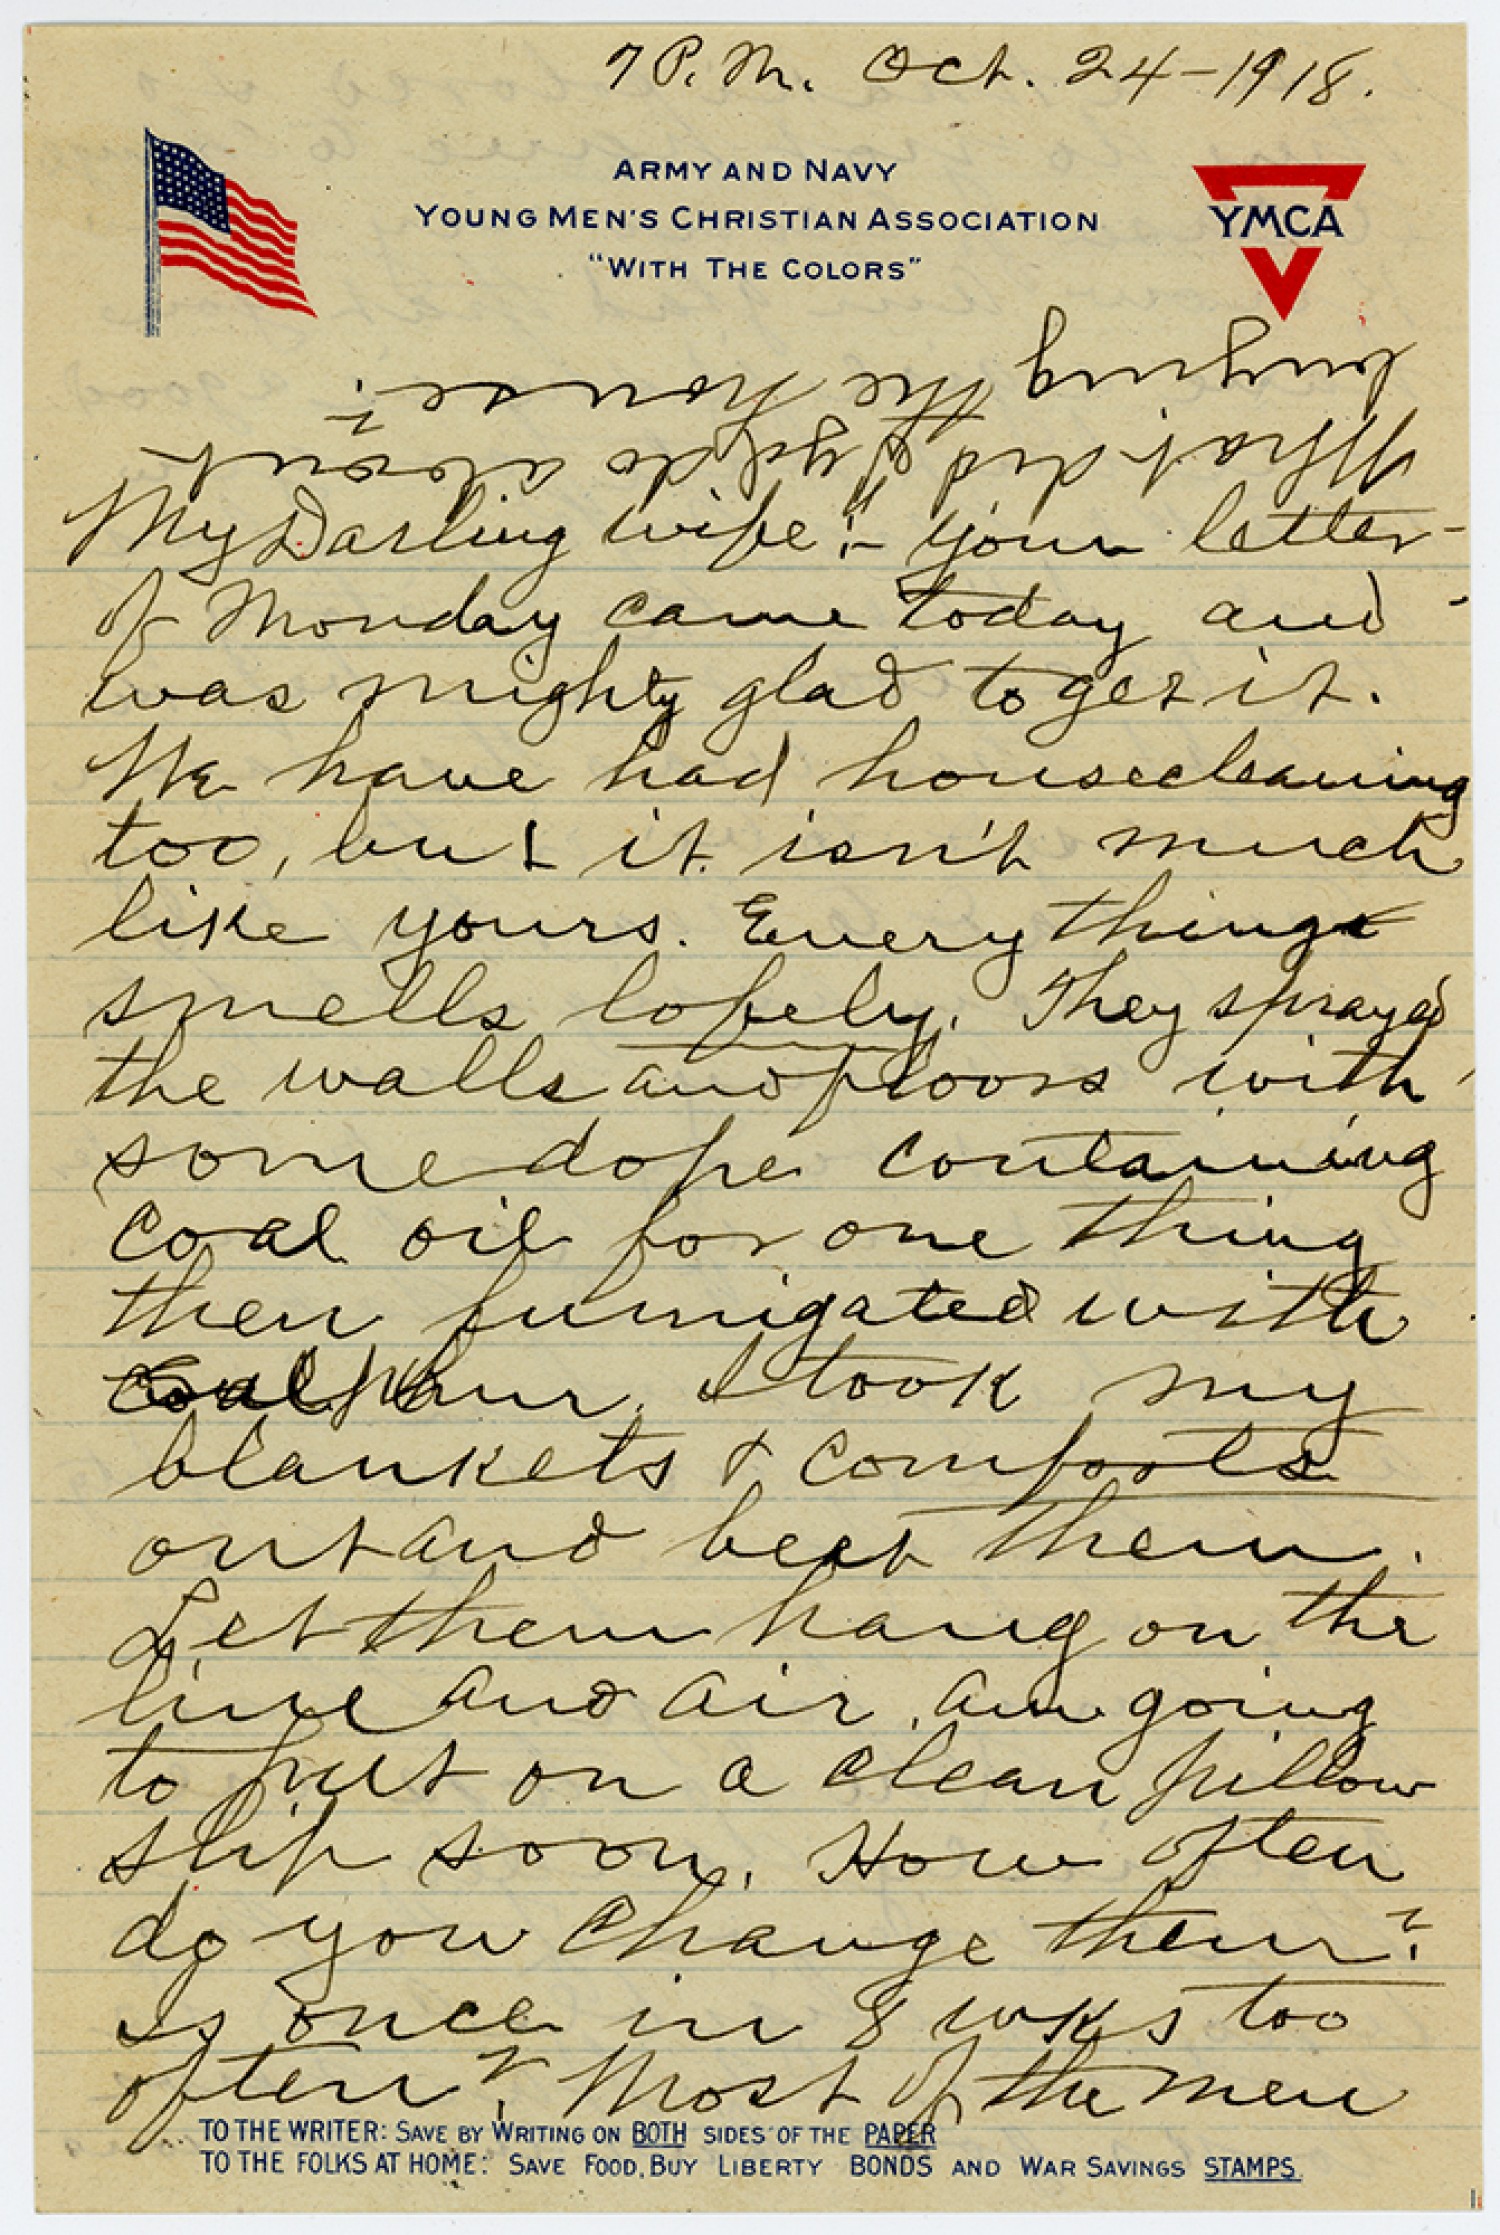 7 P.M. Oct. 24-1918.
ARMY AND NAVY
YOUNG MEN'S CHRISTIAN ASSOCIATION
"WITH THE COLORS"
YMCA
What did do about
buying the house?
My Darling Wife:- Your letter
of Monday came today and
was mighty glad to get it.
We have had housecleaning
too, but it isn't much
like yours. Every thing
smells lofely. They sprayed
the walls and floors with
some dope containing
coal oil for one thing
then fumigated with
I took my
blankets & comforts
out and beat them.
Let them hang on the
line and air. am going
to put on a clean pillow
slip soon. How often
do you change them?
Is once in 8 wks too
often? Most of the men
TO THE WRITER: SAVE BY WRITING ON BOTH SIDES OF THE PAPER
TO THE FOLKS AT HOME: SAVE FOOD, BUY LIBERTY BONDS AND WAR SAVINGS STAMPS.